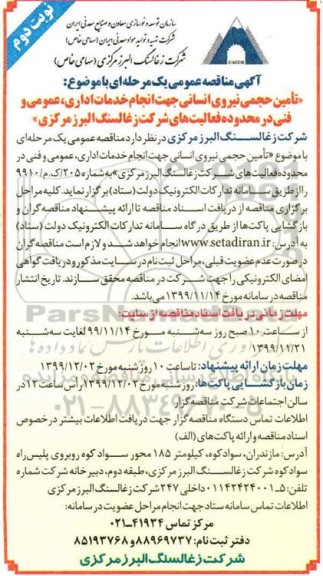 نوبت دوم
سازمان توسعه و نوسازی معادن و صنایع معدنی ایران
شرکت تهیه و تولید مواد معدنی ایران (سهامی خاص)
شرکت زغالسنگ البرز مرکزی (سهامی خاص)
آگهی مناقصه عمومی یک مرحله‌ای با موضوع:
«تأمین حجمی نیروی انسانی جهت انجام خدمات اداری، عمومی و
فنی در محدوده فعالیت‌های شرکت زغالسنگ البرز مرکزی»
شرکت زغالسنگ البرز مرکزی در نظر دارد مناقصه عمومی یک مرحله‌ای
با موضوع «تأمین حجمی نیروی انسانی جهت انجام خدمات اداری، عمومی و فنی در
محدوده فعالیت‌های شرکت زغالسنگ البرز مرکزی» به شماره ۲۰۵/ک.م/۹۹۱۰
را از طریق سامانه تدارکات الکترونیک دولت (ستاد) برگزار نماید. کلیه مراحل
برگزاری مناقصه از دریافت اسناد مناقصه تا ارائه پیشنهاد مناقصه‌گران و
بازگشایی پاکت‌ها از طریق درگاه سامانه تدارکات الکترونیک دولت (ستاد)
به آدرس: www.setadiran.ir انجام خواهد شد و لازم است مناقصه‌گران
در صورت عدم عضویت قبلی، مراحل ثبت‌نام در سایت مذکور و دریافت گواهی
امضای الکترونیکی را جهت شرکت در مناقصه محقق سازند. تاریخ انتشار
مناقصه در سامانه مورخ ۱۳۹۹/۱۱/۱۴ می‌باشد.
مهلت زمانی دریافت اسناد مناقصه از سایت:
از ساعت ۱۰ صبح روز سه‌شنبه مورخ ۹۹/۱۱/۱۴ لغایت سه‌شنبه
۱۳۹۹/۱۱/۲۱
مهلت زمان ارائه پیشنهاد: تا ساعت ۱۰ روز شنبه مورخ ۱۳۹۹/۱۲/۰۲
زمان بازگشایی پاکت‌ها: روز شنبه مورخ ۱۳۹۹/۱۲/۰۲ راس ساعت ۱۲ در
سالن اجتماعات شرکت مناقصه‌گزار
اطلاعات تماس دستگاه مناقصه‌گزار جهت دریافت اطلاعات بیشتر در خصوص
اسناد مناقصه و ارائه پاکت‌های (الف)
آدرس: مازندران، سوادکوه، کیلومتر ۱۸۵ محور سوادکوه روبروی پلیس‌راه
سوادکوه شرکت زغالسنگ البرز مرکزی، طبقه دوم، دبیرخانه شرکت شماره
تلفن: ۵-۰۱۱۴۲۴۲۴۰۰۱ داخلی ۲۴۷ شرکت زغالسنگ البرز مرکزی
اطلاعات تماس سامانه ستاد جهت انجام مراحل عضویت در سامانه:
مرکز تماس ۴۱۹۳۴-۰۲۱
دفتر ثبت‌نام: ۸۸۹۶۹۷۳۷ و ۸۵۱۹۳۷۶۸
شرکت زغالسنگ البرز مرکزی